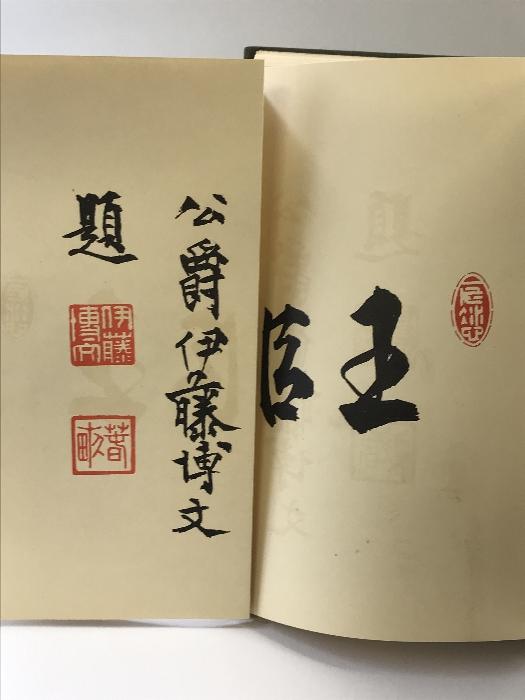 王
公爵伊藤博文
題
伊藤博文
春畝